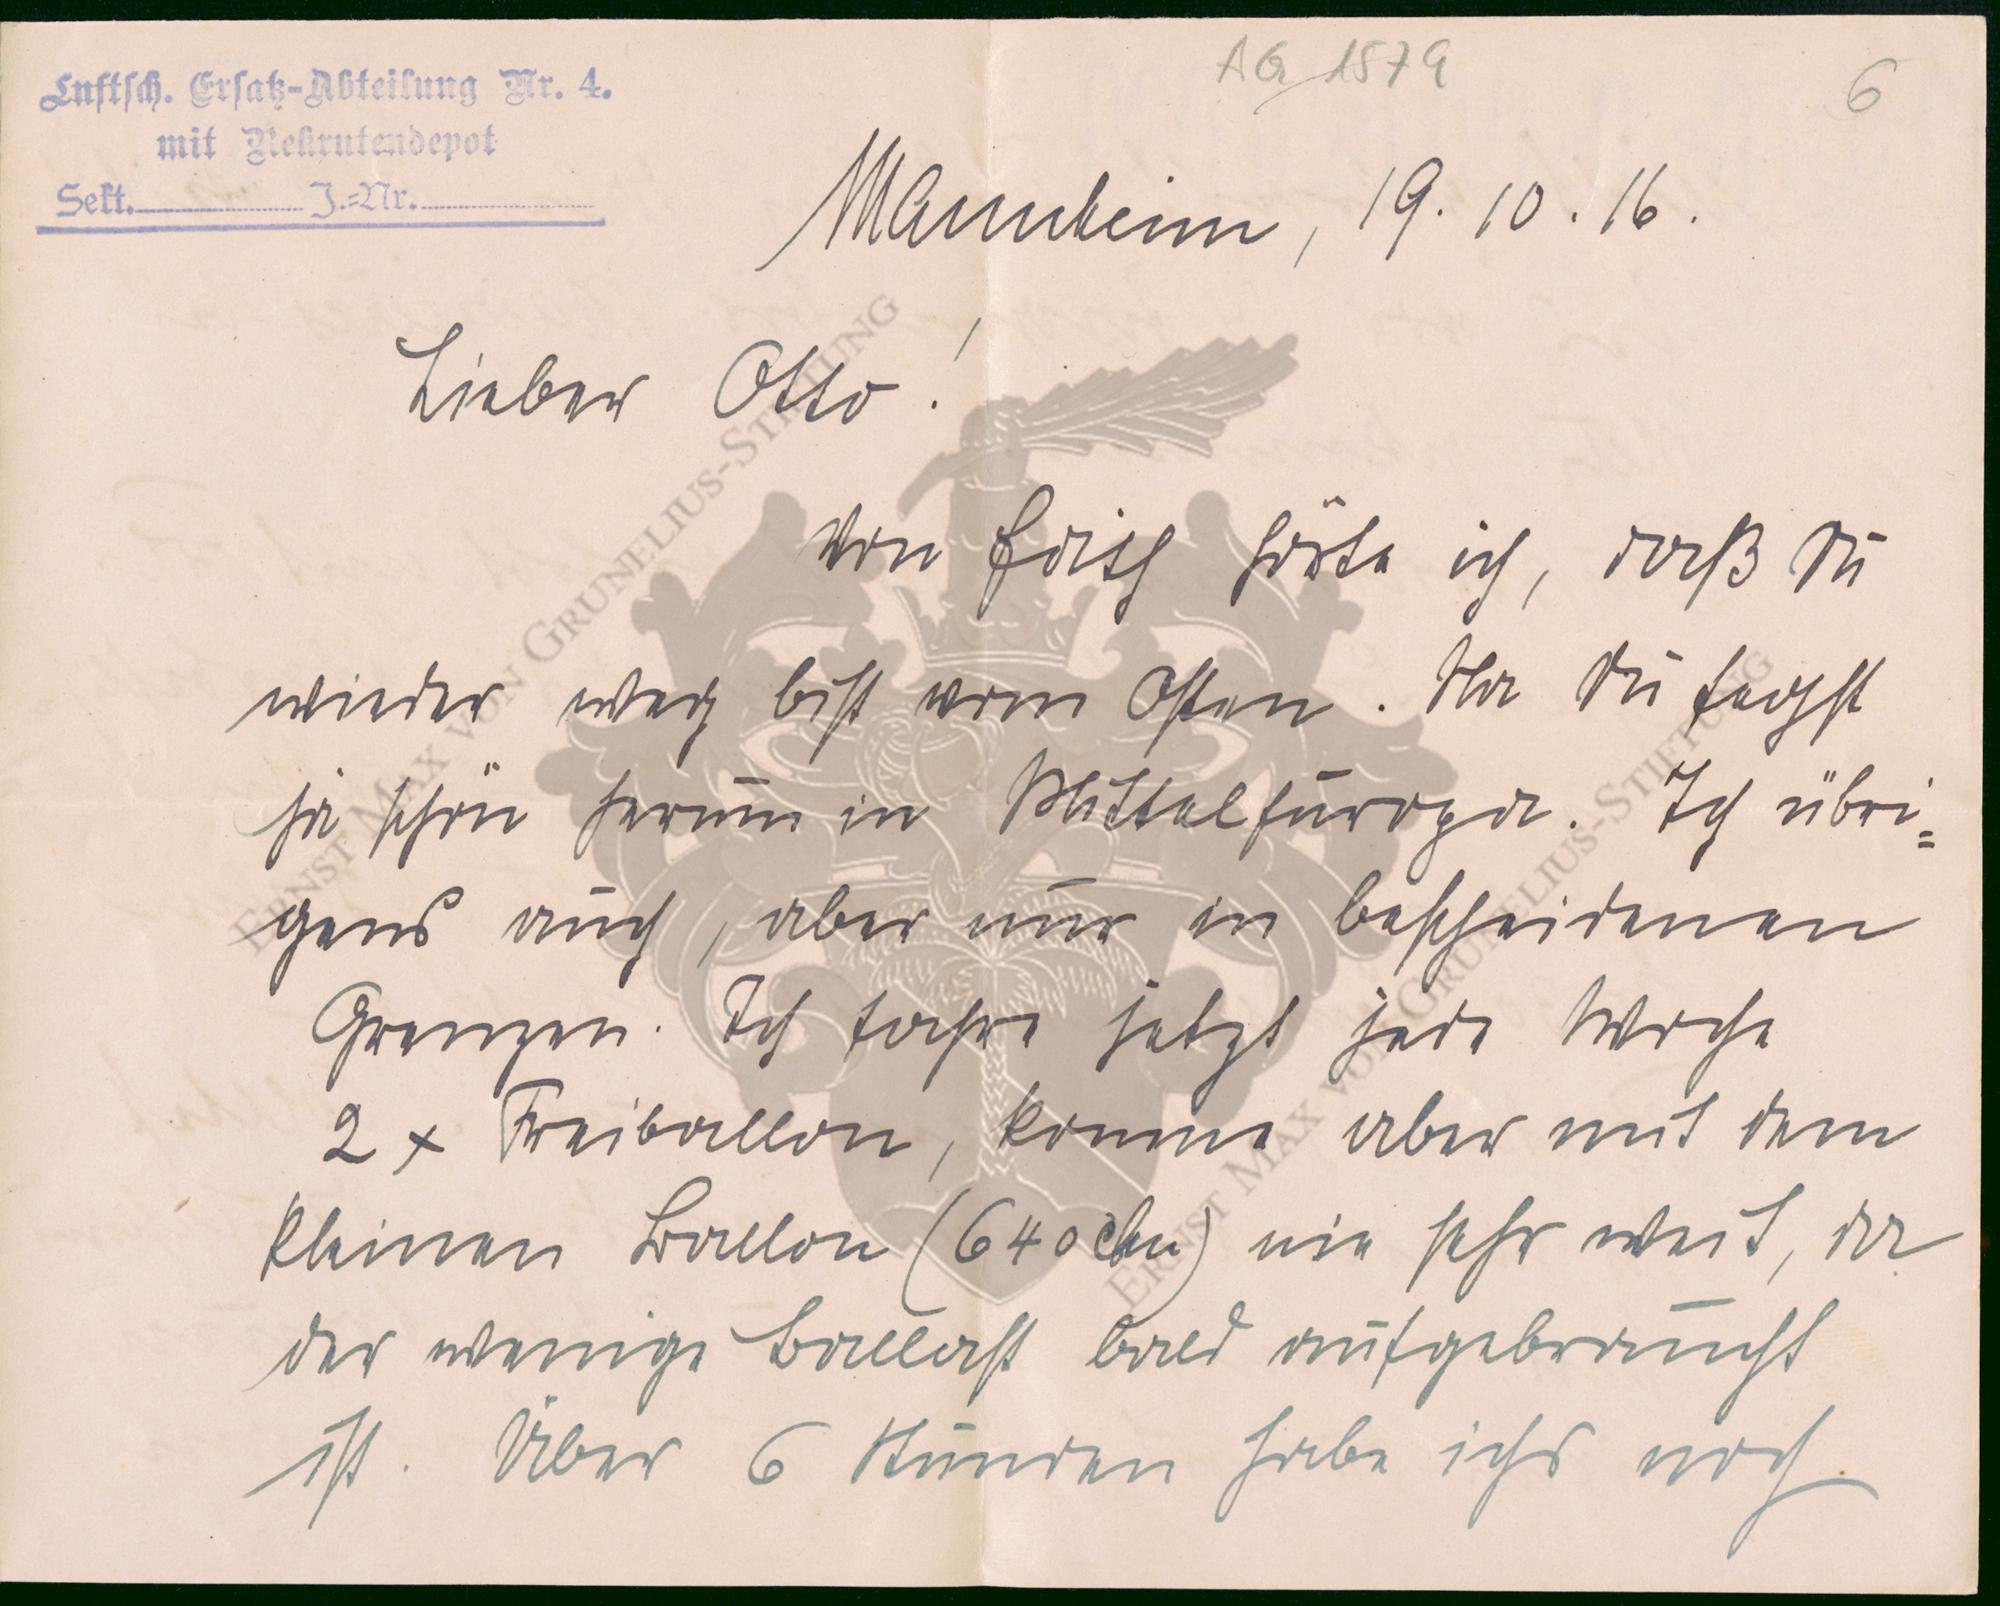 Luftsch. Ersatz-Abteilung Nr. 4.
mit Rekrutendepot
Sekt. J.-Nr.
AG 1879
6
Mannheim, 19.10.16.
Lieber Otto!
Von Edith hörte ich, daß Du
wieder weg bist vom Osten. Na Du fegst
ja schön herum in Mitteleuropa. Ich übri=
gens auch, aber nur in bescheidenen
Grenzen. Ich fahre jetzt jede Woche
2 x Freiballon, komme aber mit dem
kleinen Ballon (640 cbm) nie sehr weit, da
der wenige Ballast bald aufgebraucht
ist. Über 6 Stunden habe ichs noch
ERNST MAX VON GRUNELIUS-STIFTUNG
ERNST MAX VON GRUNELIUS-STIFTUNG